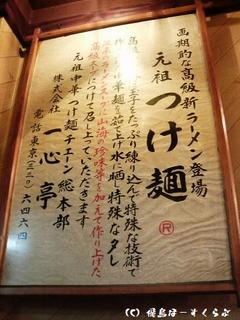 画期的な高級新ラーメン登場
元祖 つけ麺
R
高級な玉子をたっぷり練り込んで特殊な技術で
作った中華麺を茹で上げ水に晒し特殊なタレ
に山海の珍味等を加えて作り上げた
につけて召し上っていただきます
元祖中華つけ麺チェーン総本部
株式会社 一心亭
電話東京(三二〇)六四六四
(C) 飛鳥ほーすくらぶ